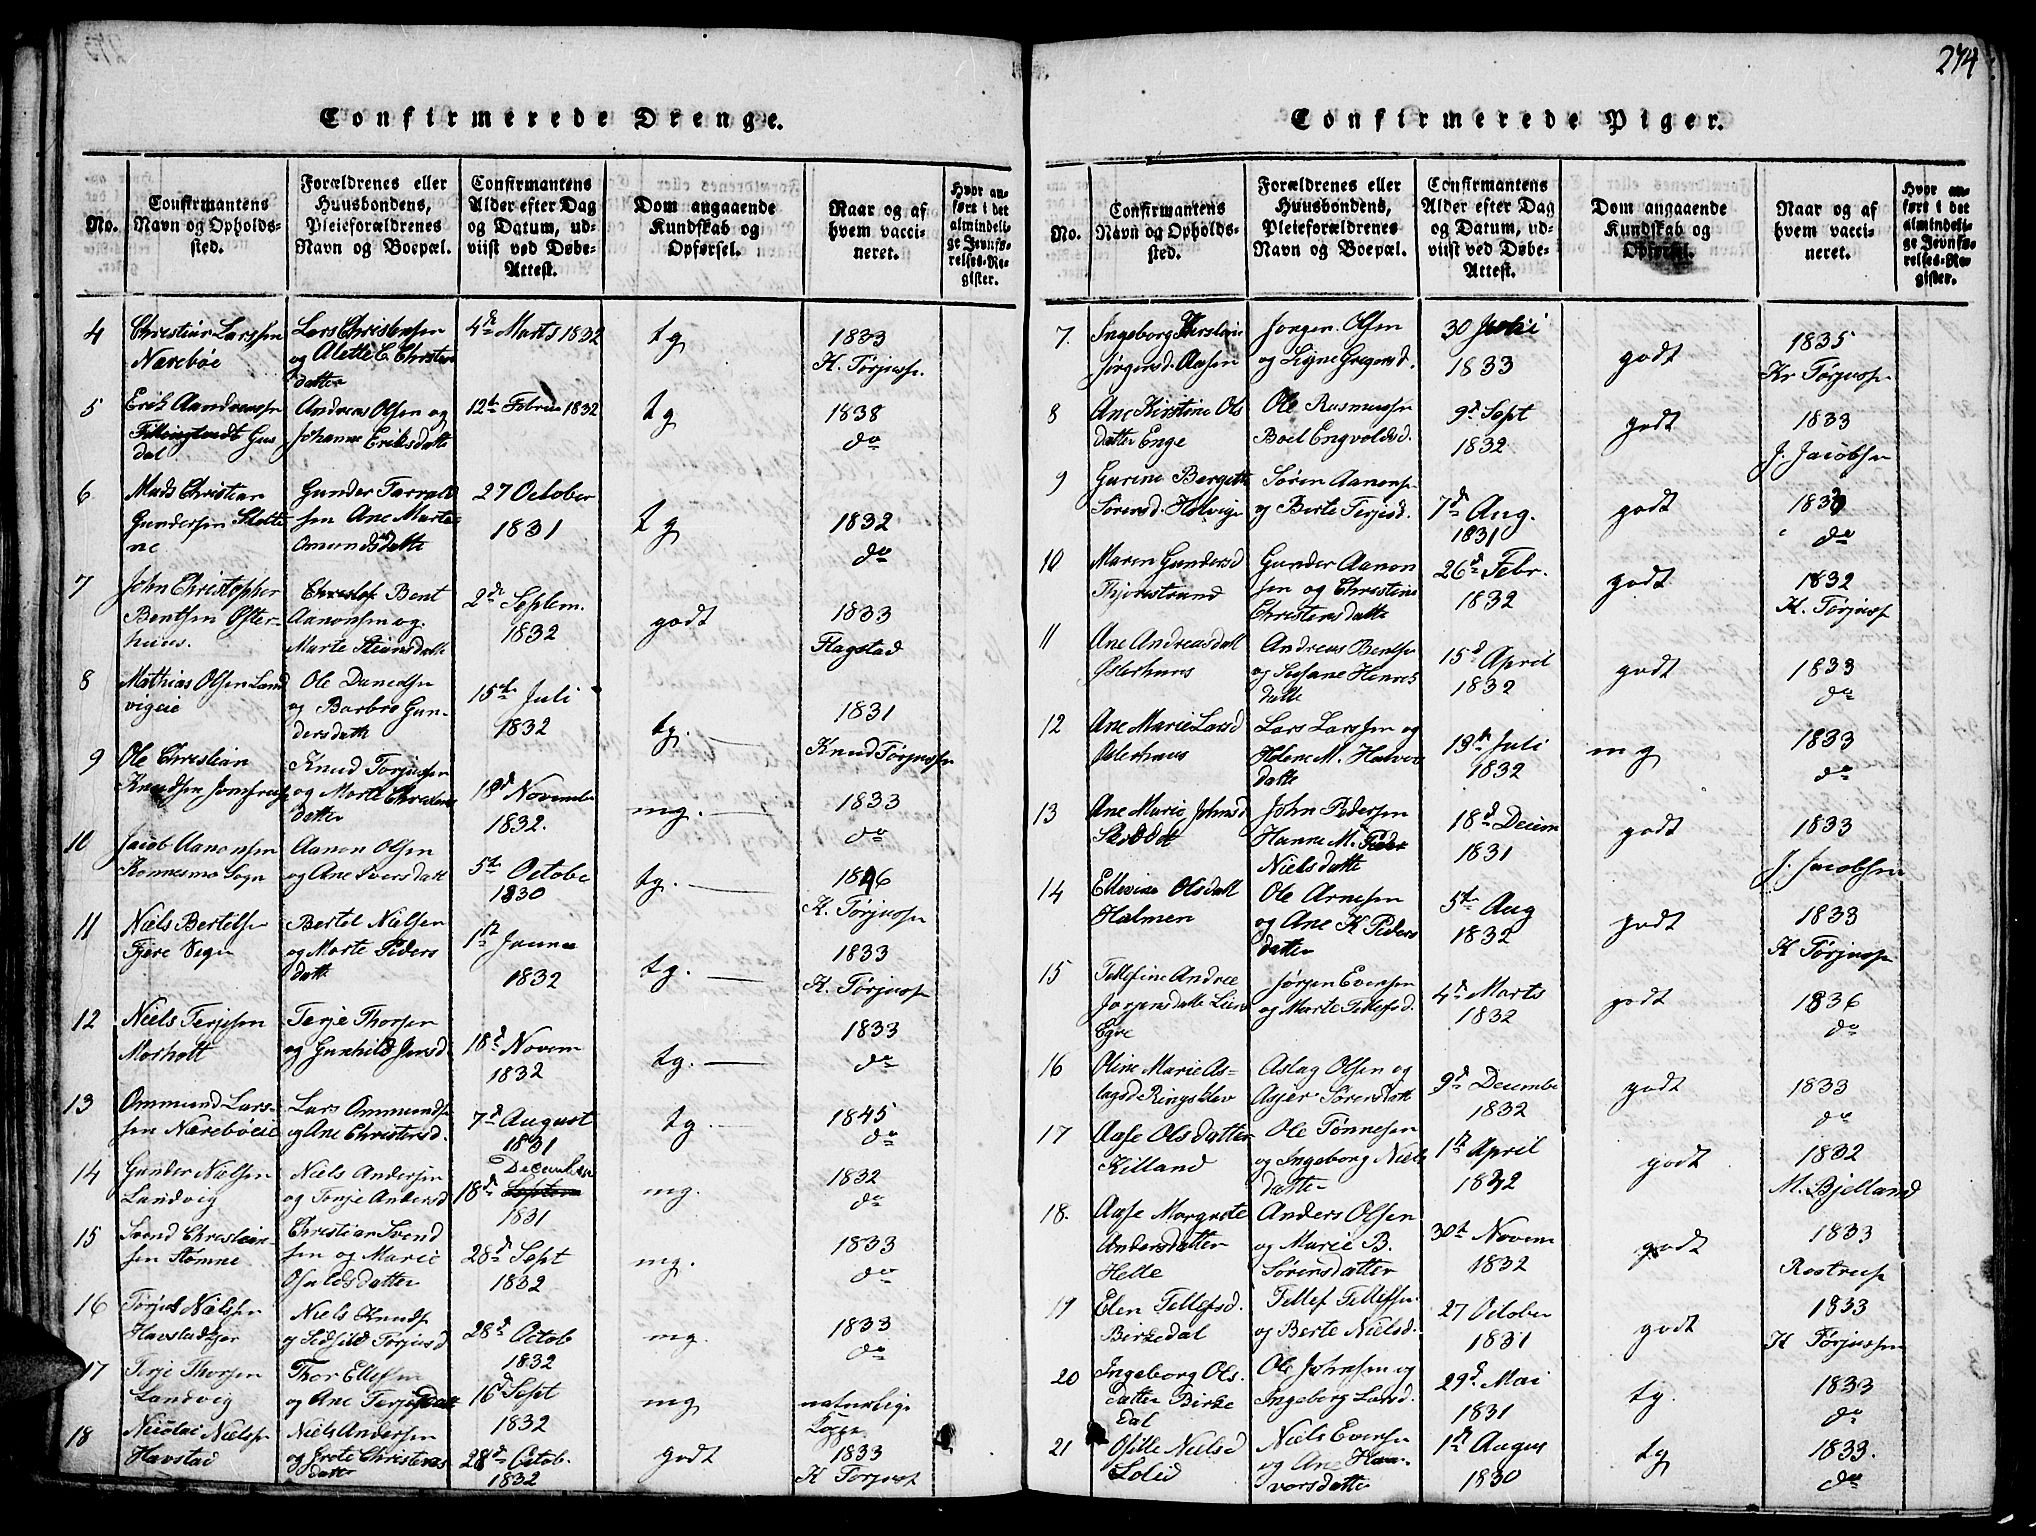 274
Confirmerede Drenge.
No.
Confirmantens
Navn og Opholds-
sted.
Forældrenes eller
Huusbondens,
Pleieforældrenes
Navn og Boepæl.
Confirmantens
Alder efter Dag
og Datum, ud-
viist ved Døbe-
Attest.
Dom angaaende
Kundskab og
Opførsel.
Naar og af
hvem vacci-
neret.
Hvor an-
ført i det
almindeli-
ge Jevnfø-
relses-Re-
gister.
4
Christian Larssen
Nærebøe
Lars Christensen
og Alette C. Christens
datter
4de Marts 1832
tg
1833
K. Tørjussn
5
Erik Aandreassn
dal
Andreas Olsen og
Johanne Eriksdatte
12te Februar 1832
tg
1838
do
6
Mads Christian
Gundersen Slotte
ne
Gunder Tarrald
sen Ane Marte
Omundsdatte
27 October
1831
tg
1832
do
7
John Christopher
Bentsen Øster-
huus.
Bent
Aanonsen og
Marte Steinsdatt
2de Septem.
1832
godt
1833
Flagstad
8
Mathias Olsen Land
vigeie
Ole Danielsen
og Barbro Gun-
dersdatt
15de Juli
1832
tg.
1831
Knud Tørjussn
9
Ole Christian
Knudsen
Knud Torjussen
og Marte Christens
datter
18d Novembe
1832.
mg.
1833
do
10
Jacob Aanonsen
Konnesmo Sogn
Aanon Olsen
og Ane Iversdatt
5te Octobe
1830
tg.
1846
K. Tørjussn
11
Niels Bertelsn
Fjere Sogn
Bertel Nielsen
og Marte Peders
datt
1ste Janua
1832
tg.
1833
K. Tørjussn
12
Niels Terjesen
Morholt
Terje Thorsen
og Gunhild Jensd.
18d Novem
1832
tg.
1833
do
13
Ommund Lars-
sen Nærebøeie
Lars Ommundsn
og Ane Christensd.
7d August
1831
tg.
1845
do
14
Gunder Nielsen
Landvig
Niels Andersen
og Terje Andersd
December
18d Septem
1831
mg.
1832
do
15
Svend Christian-
sen Stømne
Christian Svend
sen og Marie
Osuldsdatter
28d Sept
1832
mg.
1833
do
16
Tørjus Nielsen
Havstad
Niels Knudsn
og Tørjusd
28d Octob
1832
mg.
1833
do
17
Terje Thorsen
Landvig
Thor Ellefsen
og Ane Terjesdatt
16d Sept
1832
mg
naturlige
Kopper
18
Nicolai Nielsn
Havstad
Niels Andersen
og Grete Christens
datte
28d Octob.
1832
godt
1833
K Torjussn
Confirmerede Piger.
No.
Confirmantens
Navn og Opholds-
sted.
Forældrenes eller
Huusbondens,
Pleieforældrenes
Navn og Boepæl.
Confirmantens
Alder efter Dag
og Datum, ud-
viist ved Døbe-
Attest.
Dom angaaende
Kundskab og
Opførsel.
Naar og af
hvem vacci-
neret.
Hvor an-
ført i det
almindeli-
ge Jevnfø-
relses-Re-
gister.
7.
Ingeborg Kirstine
Jørgensd. Aasen
Jørgen Olsen
og Signe Gregersd.
30 Juli
1833
godt
1835
Kr Tørjussn
8
Ane Kirstine Ols
datter Enge
Ole Rasmussn
Boel Engvoldsd.
9d Sept
1832
godt
1833
J. Jacobsen
9
Gurine Bergitte
Sørensd. Holvige
Søren Aanonsn
og Berte Terjesd.
7d Aug.
1831
godt
do
10
Maren Gundersd
Thjorestrand
Gunder Aanon
sen og Christine
Christensdatte
26d Febr.
1832
godt
1832
K. Tørjussn
11
Ane Andreasdatt
Østerhuus
Andreas Bentsn
og Susane Henriks
datte
15d April
1832
godt
1833
do
12
Ane Marie Larsd
Østerhuus
Lars Larssen og
Helene M. Halvor
datte
13de Juli
1832
mg
1833
do
13
Ane Marie Johnsd
John Pedersen
Hanne M.
Nielsdatte
18d Decem
1831
godt
1833
J. Jacobsen
14
Ellevine Olsdatt
Holmen
Ole Arnesen
og Ane K Peders
datter
5te Aug
1832
godt
1833
K Tørjussn
15
Tellefine Andrea
Jørgensdatte Lien
Egre
Jørgen Evensen
og Marte Tellefsd.
4d Marts
1832
godt
1836
do
16
Oline Marie As-
lagsd Ringsklev
Aslag Olsen og
Asjer Sørensdatt
9d Decembe
1832
godt
1833
do
17
Aase Olsdatter
Killand
Ole Tønnesen
og Ingeborg Niels
datter
1ste April
1832
godt
1832
M. Bjelland
18.
Aase Margrete
Andersdatter
Helle
Anders Olsen
og Marie B.
Sørensdatter
30te Novem
1832
godt
1833
Rostrup
19
Elen Tellefsd.
Birkedal
Tellef Tellefsen
og Berte Nielsd.
27 October
1831
godt
1833
K Tørjussen
20
Ingeborg Ols.
datter Birke
dal
Ole Johnsen og
Ingeborg Larsd.
29d Mai
1831
tg.
1833
do
21
Osille Nielsd
Solid
Niels Evensen
og Ane Haa-
vorsdatte
1ste Augus
1830
tg
1833.
do